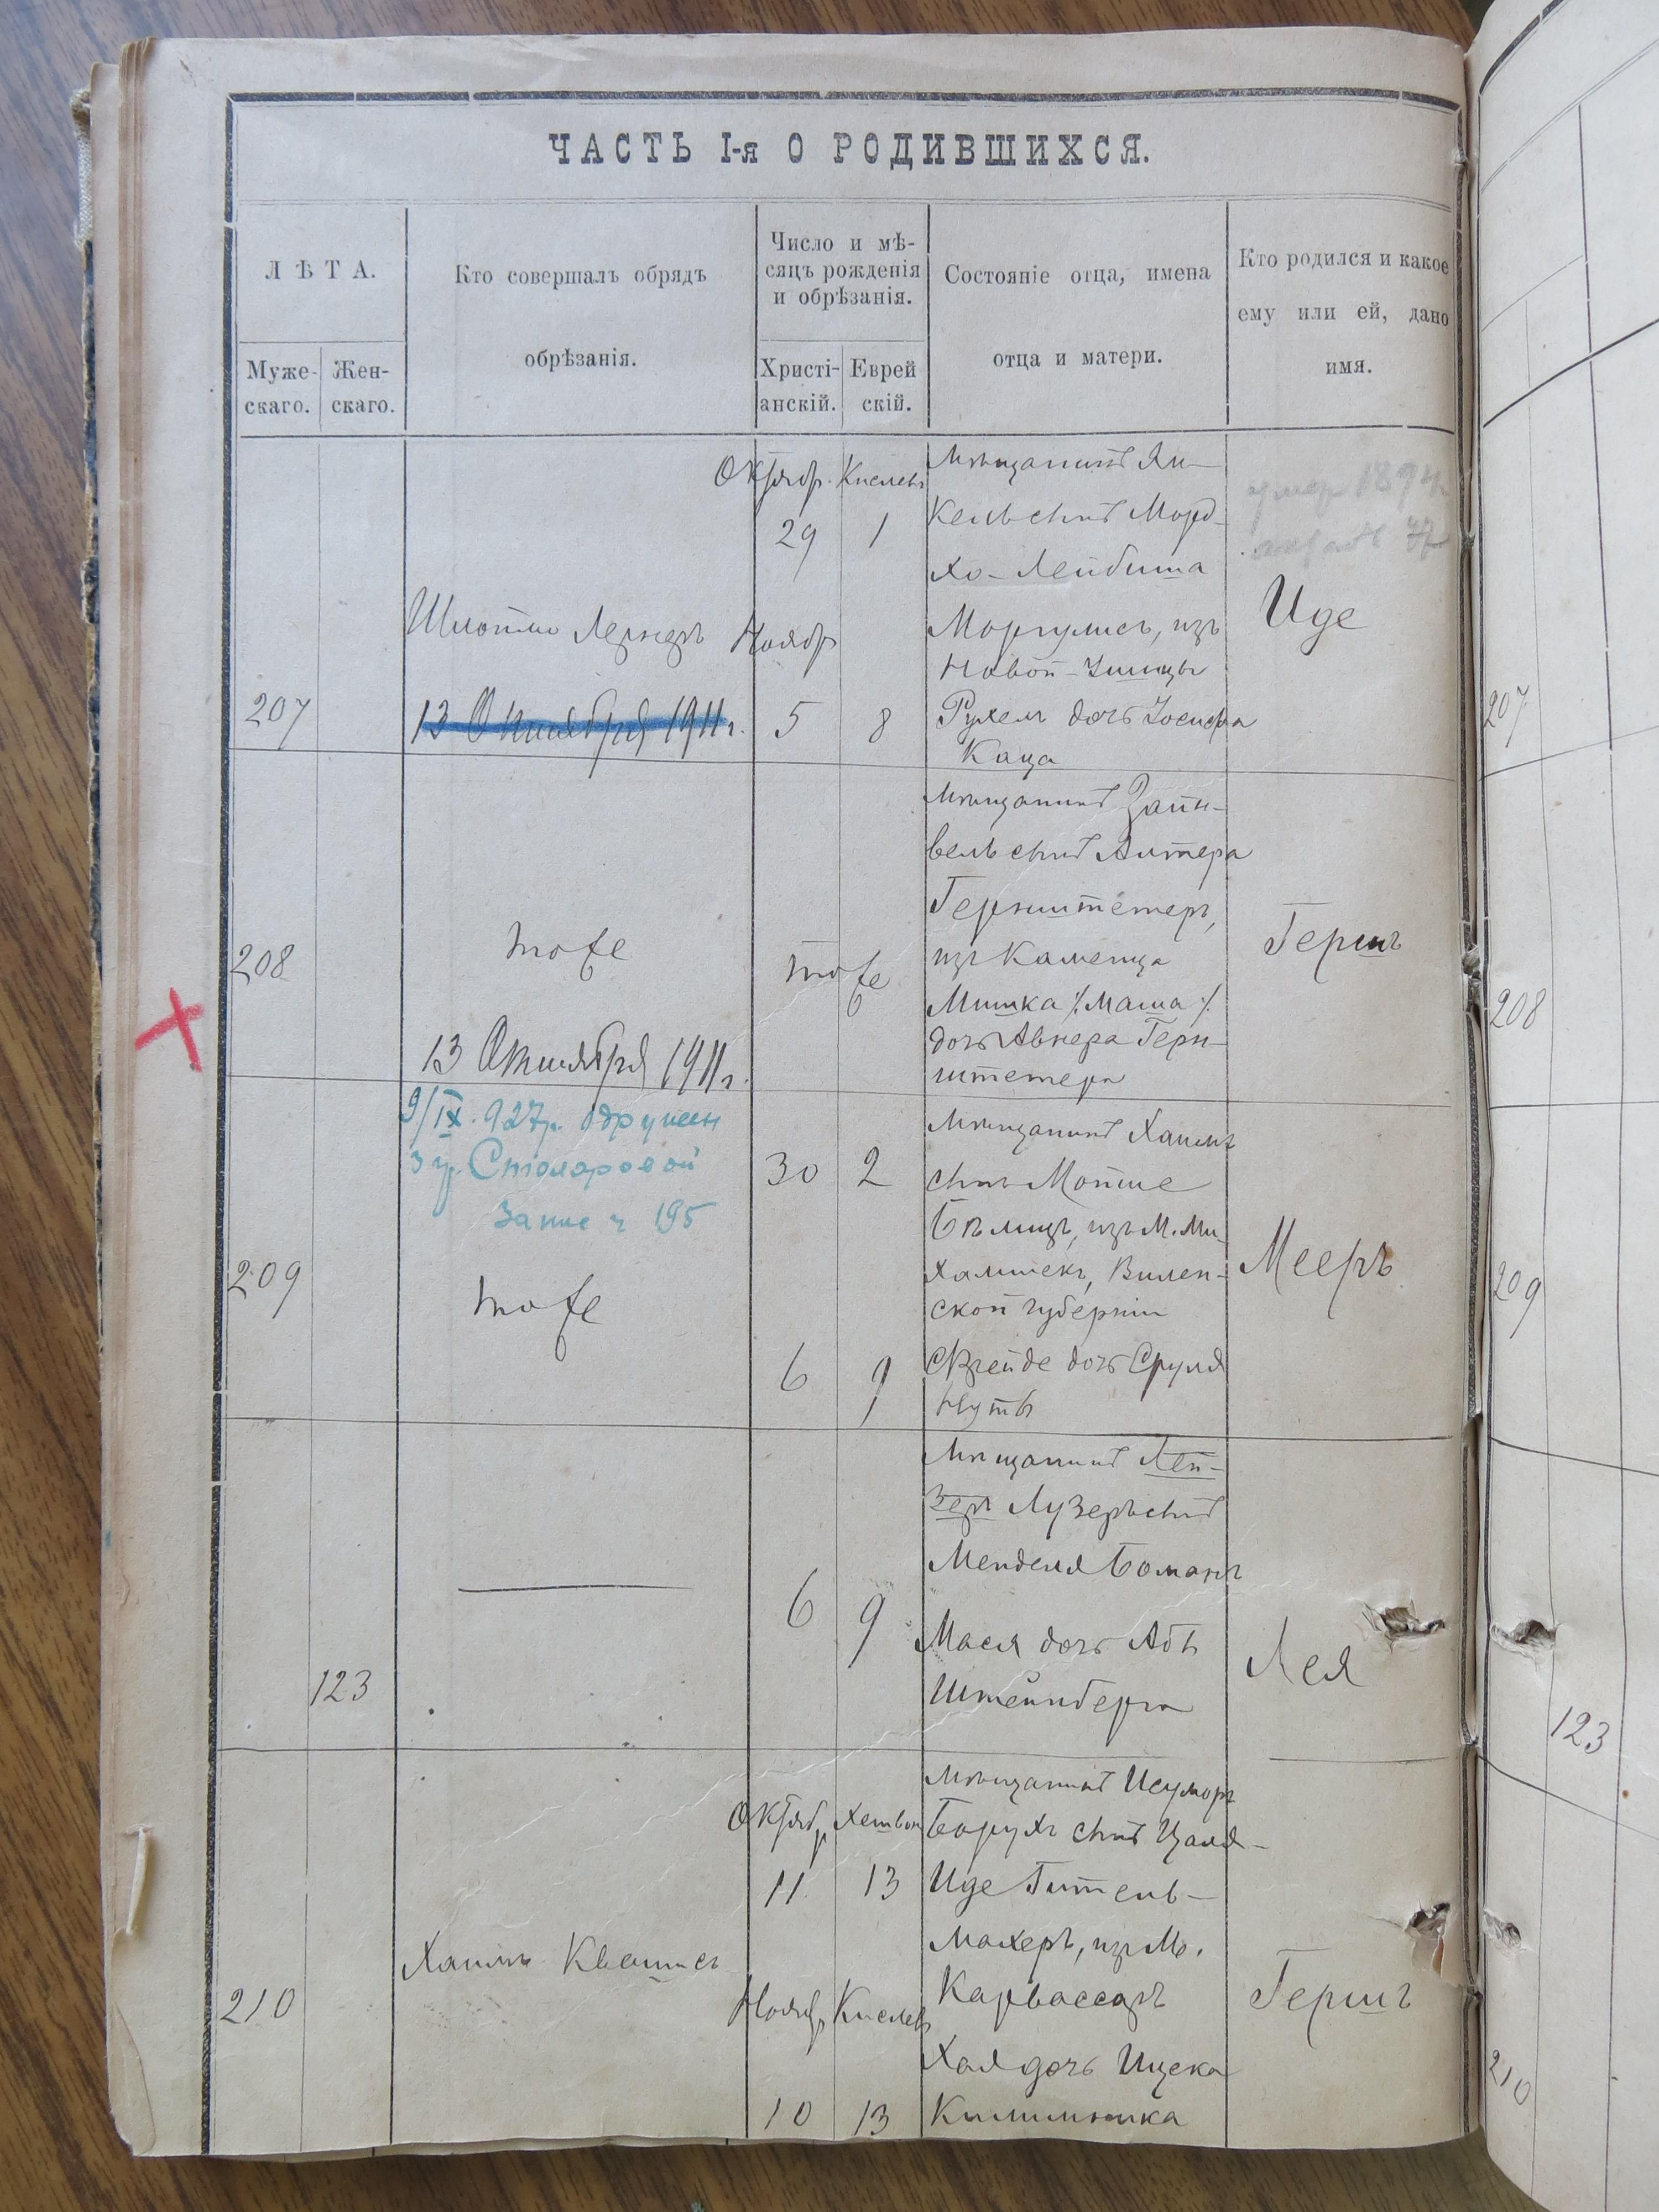 ЧАСТЬ I-я О РОДИВШИХСЯ.
ЛѢТА.
Муже-
скаго.
Жен-
скаго.
Кто совершалъ обрядъ
обрѣзанія.
Число и мѣ-
сяцъ рожденія
и обрѣзанія.
Христі-
анскій.
Еврей
скій.
Состояніе отца, имена
отца и матери.
Кто родился и какое
ему или ей, дано
имя.
207
13 Октября 1911 г.
Октябр. Кислевъ
29 1
Ноябр
5 8
Мѣщанинъ Ян-
Кель сынъ Морд-
хо-Лейбиша
Моргулисъ, изъ
Новой-Ушицы
Рухель дочь Іосифа
Каца
умер 1894
Иде
207
208
тоже
13 Октября 1911 г.
тоже
Мѣщанинъ Зайн-
вель сынъ Алтера
Гернштетеръ,
изъ Каменца
Мишка /Маша/
дочь Авнера Герн-
штетера
Гершъ
208
9/IX. 927р. Одружен
з гр. Столяровой
запис ч 195
209
тоже
30 2
6 9
Мѣщанинъ Хаимъ
сынъ Мотие
Бѣлицъ, изъ М. Ми-
халишекъ, Вилен-
ской губерніи
Сврейде дочь Сруля
Нутъ
Мееръ
209
123
6 9
Мѣщанинъ Лей-
зеръ Лузеръ сынъ
Менделя Боманъ
Мася дочь Абы
Штейнберга
Лея
123
210
Хаимъ Квашисъ
Октяб, Хешвон
11 13
Ноябр, Кислевъ
10 13
Мѣщанинъ
Борухъ сынъ Цаля-
Иде Гитель-
махеръ, изъ М.
Карвассаръ
Хая дочь Ицека
Килимника
Гершъ
210